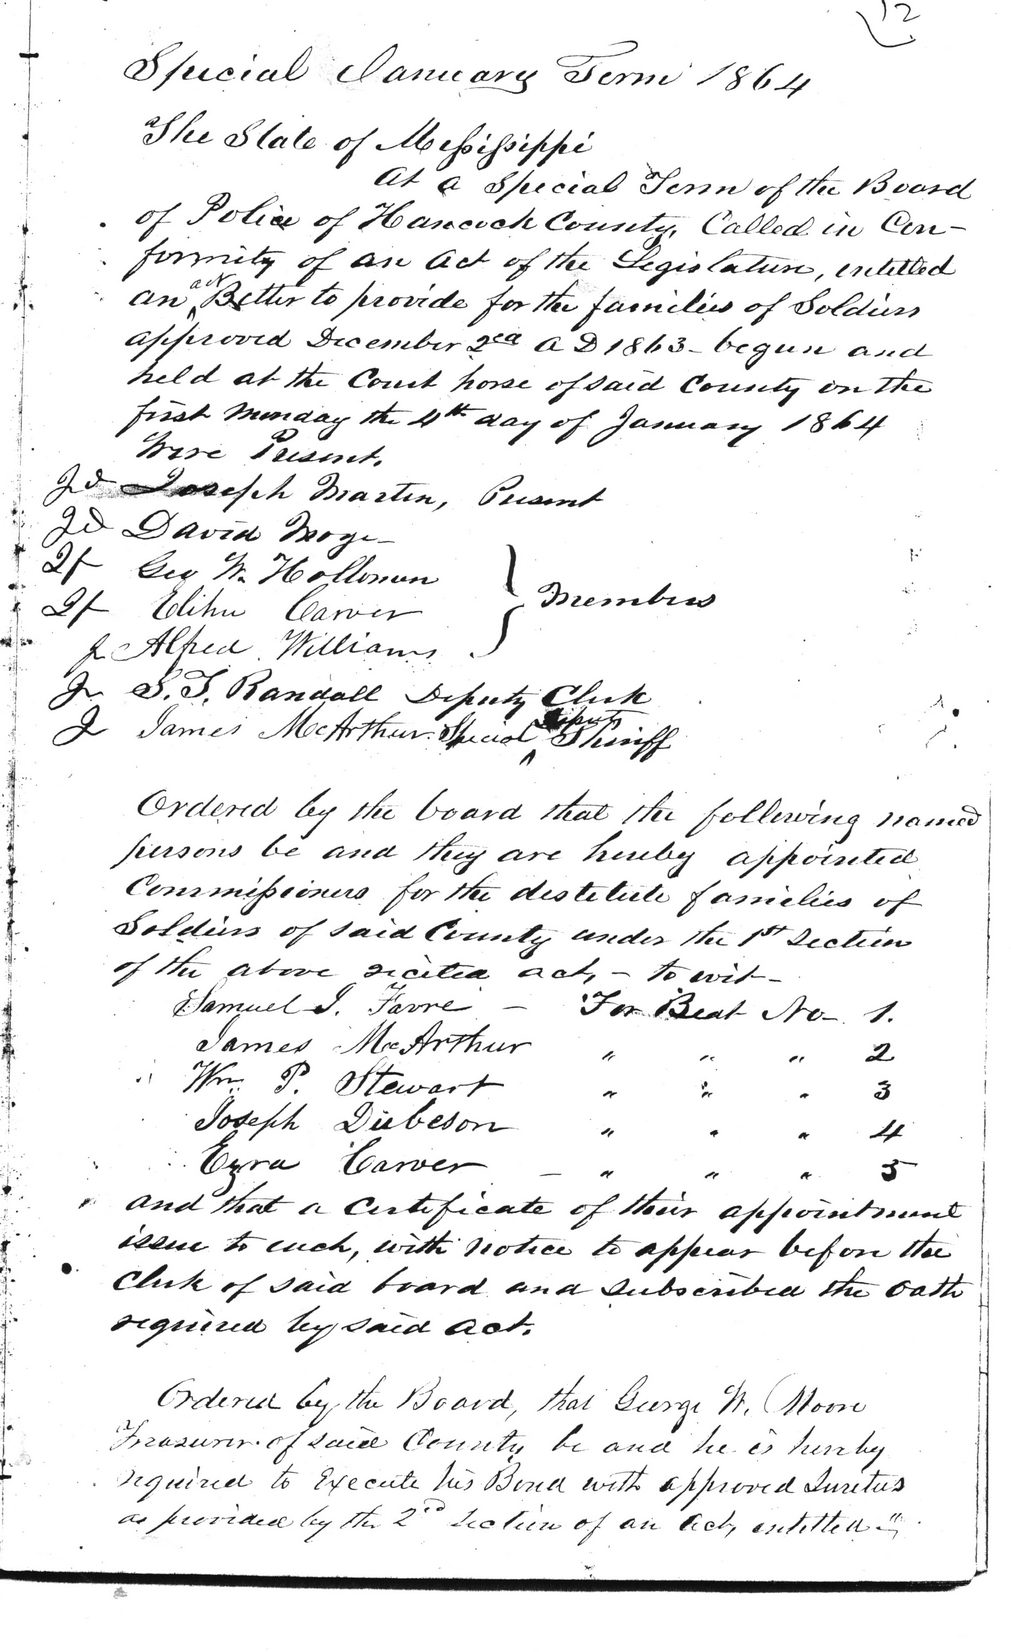 12
Special January Term 1864
The State of Mississippi
At a Special Term of the Board
of Police of Hancock County, Called in Con-
formity of an Act of the Legislature, entitled
an act Better to provide for the families of Soldiers
approved December 2nd A D 1863 - begun and
held at the Court horse of said County on the
first Monday the 4th day of January 1864
Were Present.
Joseph Martin, Present
David Moye
Geo W. Holloman
Elihu Carver } Members
Alfred Williams
S. T. Randall Deputy Clerk
James McArthur Special Deputy Sheriff
Ordered by the board that the following named
persons be and they are hereby appointed
Commissioners for the destitute families of
Soldiers of said County under the 1st Section
of the above recited act, - to wit -
Samuel J. Favre - For Beat No- 1.
James McArthur " " " 2
Wm P. Stewart " " " 3
Joseph Dubeson " " " 4
Ezra Carver - " " " 5
and that a Certificate of their appointment
issue to each, with notice to appear before the
Clerk of said board and subscribed the oath
required by said Act.
Ordered by the Board, that George W. Moore
Treasurer of said County be and he is hereby
required to Execute his Bond with approved Suretus
as provided by the 2nd Section of an Act, entitled "